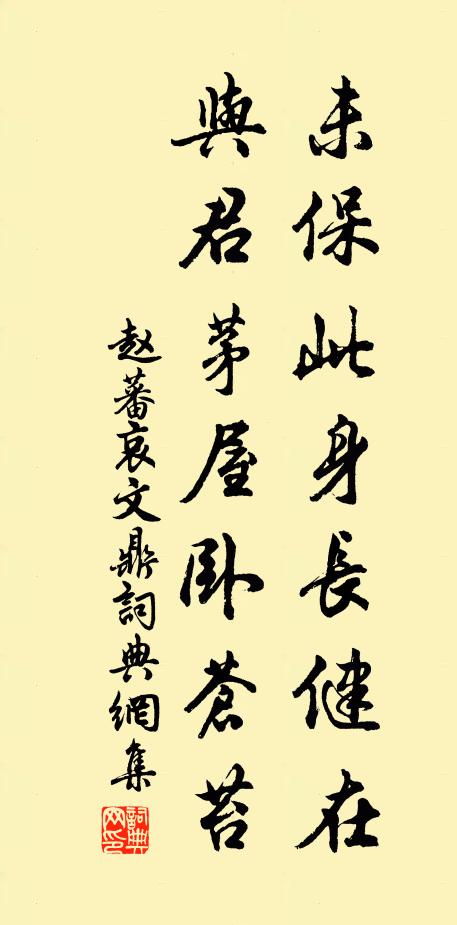 未保此身長健在
與君茅屋卧蒼苔
赵蕃哀文鼎詞典網集
詞典
网印